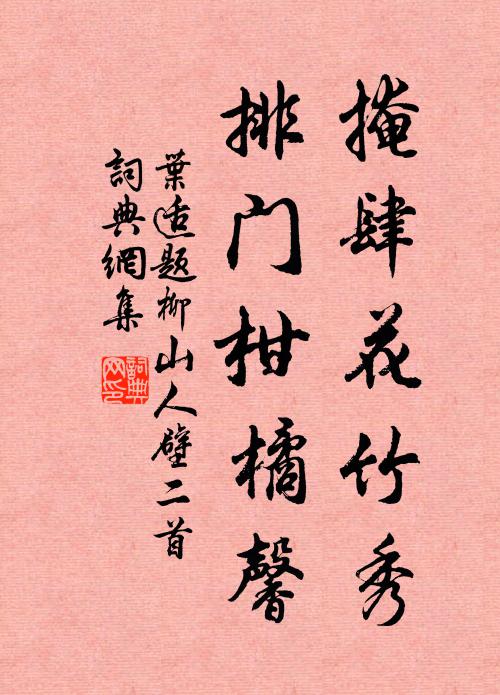 掩肆花竹秀
排门柑橘馨
葉适题柳山人壁二首
詞典網集
詞典網印